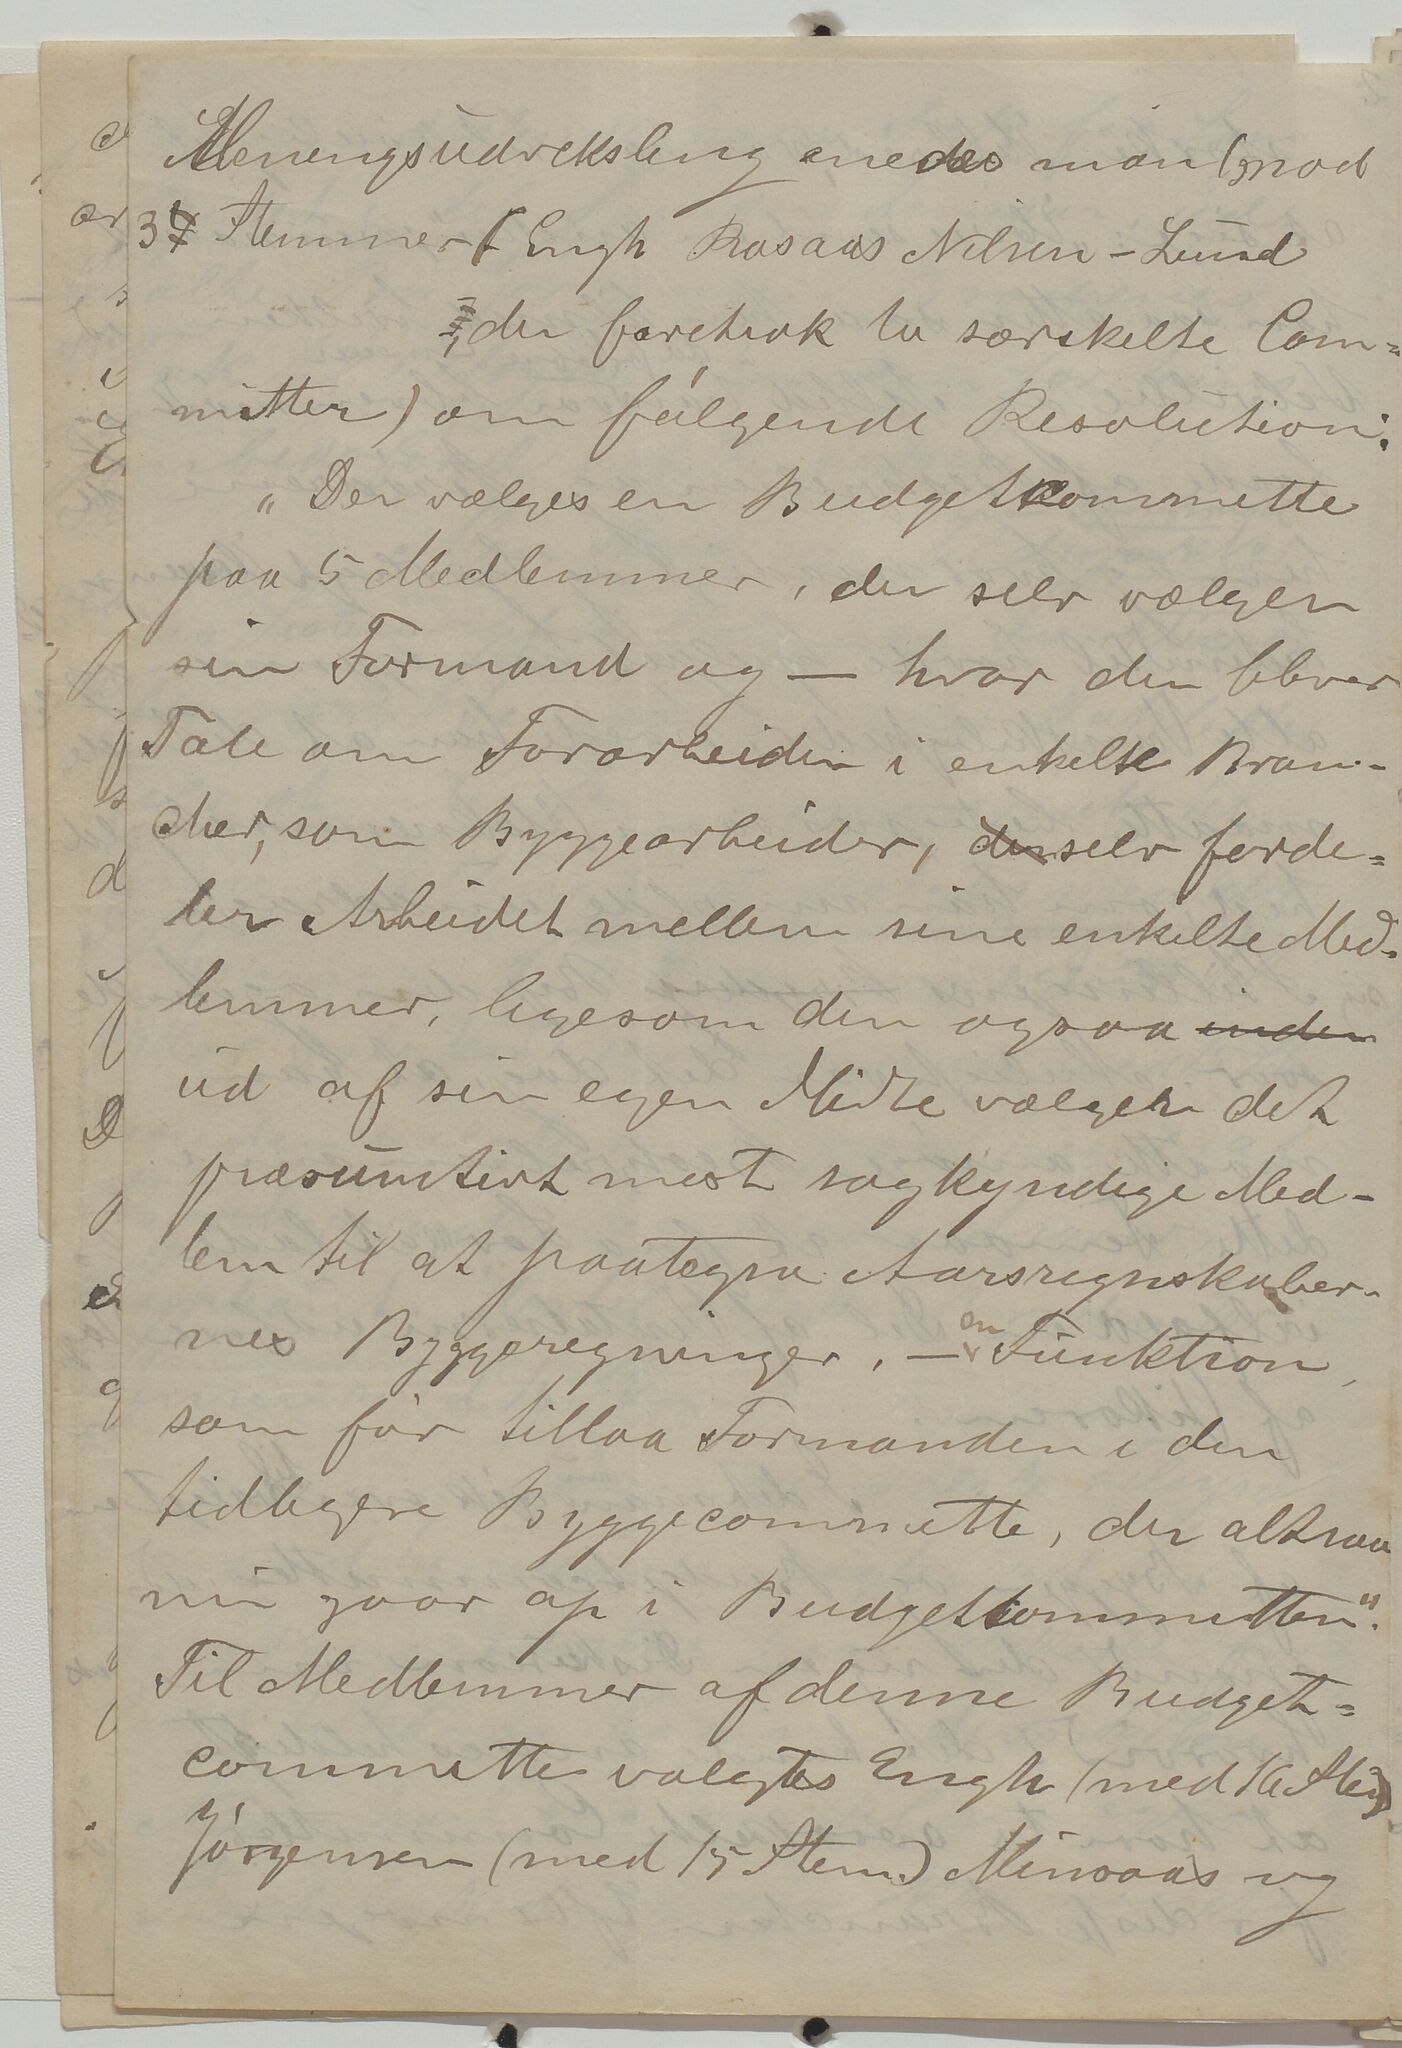 Meningsudveksling enedes man (mod
3 Stemmer (Engh Rosaas Nilsen-Lund
der foretrak to særskilte Com=
mitter) om følgende Resolution:
"Der vælges en Budgetkommitte
paa 5 Medlemmer, der selv vælger
sin Formand og — hvor der bliver
Tale om Forarbeider i enkelte Bran-
cher, som Byggearbeider, den selv forde=
ler Arbeidet mellem sine enkelte Med-
lemmer, ligesom den ogsaa inden
ud af sin egen Midte vælger det
præsumtivt mest sagkyndige Med-
lem til at paategne Aarsregnskaber-
nes Byggeregninger, — en Funktion,
som før tillaa Formanden i den
tidligere Byggecommitte, der altsaa
nu gaar op i Budgetkommitten".
Til Medlemmer af denne Budget=
committe valgtes Engh (med 16 Stem)
Jørgensen (med 15 Stem.) Minsaas og